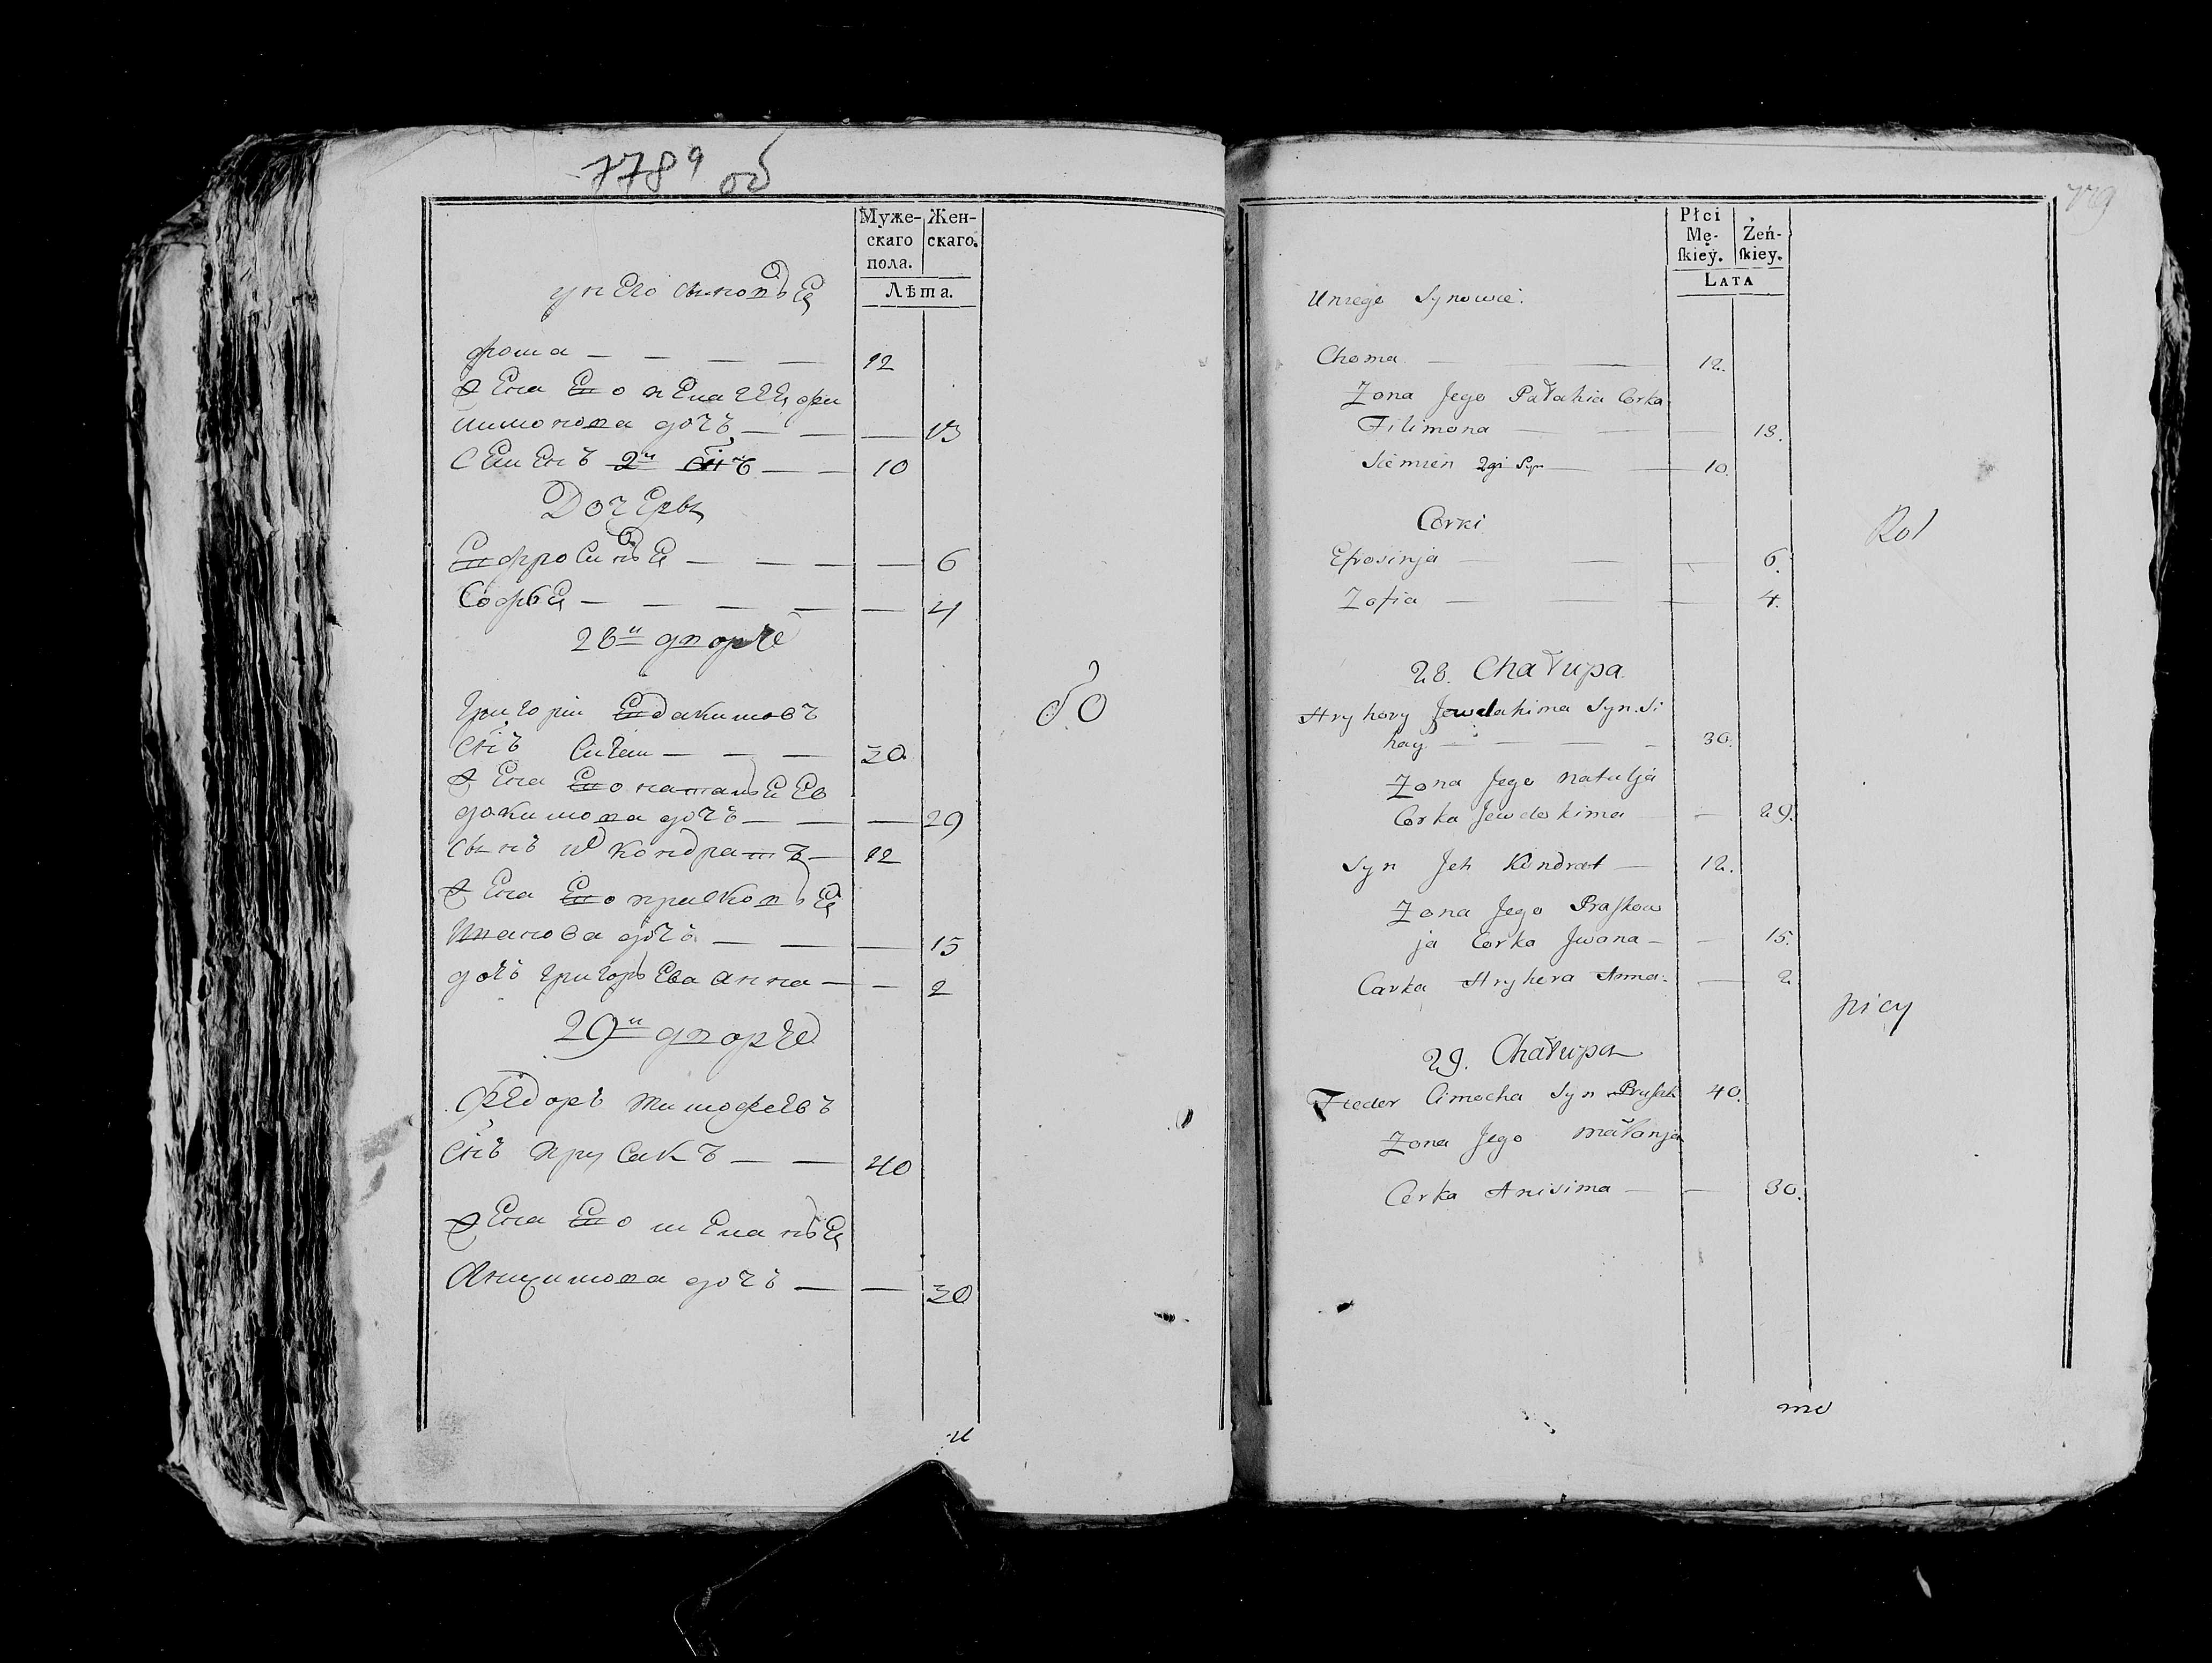 7789 об
Муже-
скаго
пола.
Жен-
скаго.
Лѣта.
у него сыновья
фома — — — — 12
жена его пелагея фи
лимонова дочь — — — 13
Семенъ 2й снъ — — 10
Дочерьи
Ефросинья — — — — 6
Софья — — — — — 4
28й дворъ
Григорій Евдакимовъ
снъ Сигай — — — 30
жена его наталья Ев
докимова дочь — — — 29
сынъ ихъ кондратъ — 12
жена его прасковья
Иванова дочь — — — 15
дочь григорьева анна — — 2
29й дворъ
Федоръ тимофеевъ
снъ прусакъ — — 40
жена его меланья
Анисимова дочь — — 30
бо
и
779
Płci
Mę-
skiey.
Żeń-
skiey.
LATA
Uniego Synowie.
Choma — — 12.
Żona Jego Pałahia Corka
Filimona — — — 13.
Siemien 2gi Syn — — 10.
Corki
Efrosinja — — — 6.
Zofia — — — 4.
28. Chałupa
Hryhory Jewdahima Syn. Si
hay — — — — 30.
Żona Jego Natalja
Corka Jewdokima — 29.
Syn Jeh Kondrat — 12.
Żona Jego Praskow
ja Corka Jwana — — 15.
Carka Hryhora Anna. — 2
29. Chałupa
Fieder Cimocha Syn Prusak 40.
Żona Jego Małanja
Corka Anisima — — 30.
Rol
nicy
mo